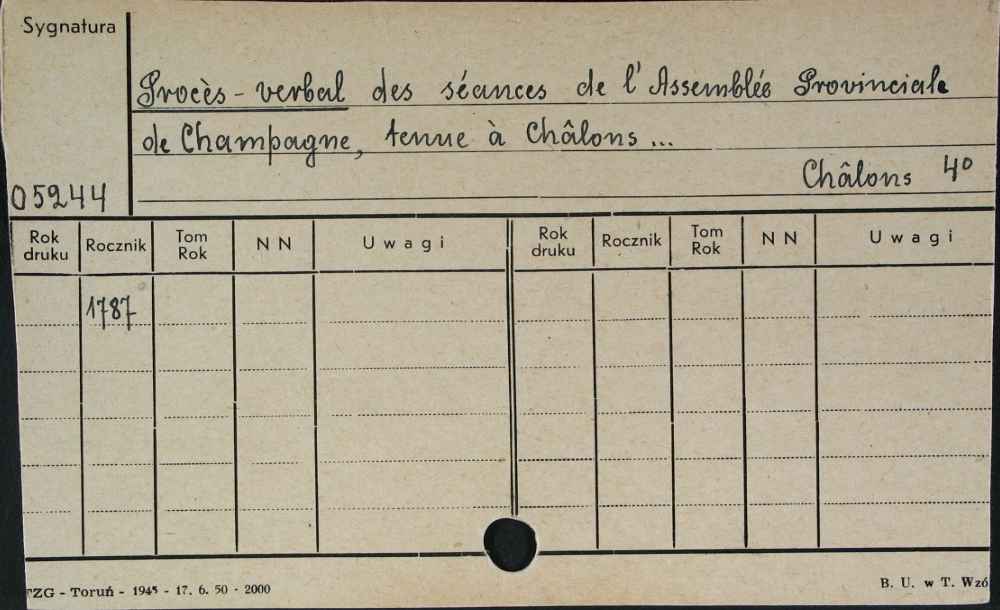 Sygnatura
Procès-verbal des séances de l'Assemblés Provinciale
de Champagne, tenue à Châlons...
Châlons 4º
05244
Rok druku Rocznik Tom Rok NN Uwagi Rok druku Rocznik Tom Rok NN Uwagi
1787
TZG - Toruń - 1945 - 17. 6. 50 - 2000
B. U. w T. Wzó